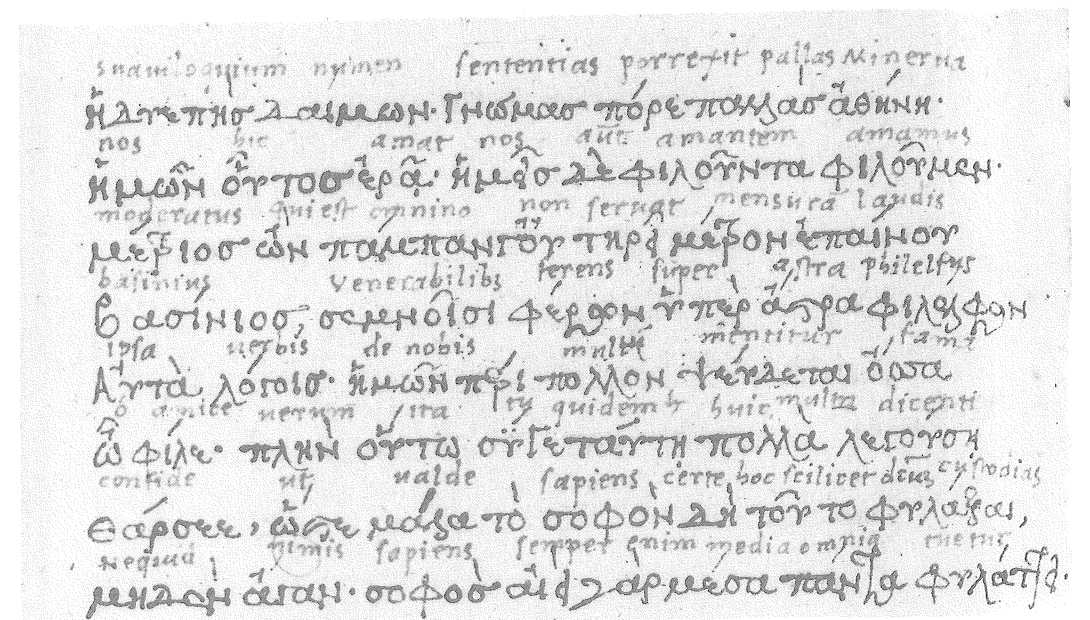 suaviloquium numen sententias porrexit pallas Minerva
ἡδυεπὴσ δαίμων· Γνώμασ πόρε παλλασ ἀθήνη·
nos hic amat nos aut amantem amamus
ἡμῶν οὗτοσ ἐρᾷ· ἡμεῖσ δὲ φιλοῦντα φιλοῦμεν·
moderatus qui est omnino non seruat mensurā laudis
μέτριοσ ὢν πάμπαν τοῦ τηρεῖ μέτρον ἐπαίνου
basinius venerabilibs ferens super astra philelfus
βασίνιοσ, σεμνοῖσι φέρων ὑπὲρ ἄστρα φιλέλφον
ipsa uerbis de nobis mentitur fama
Αὐτὰ λόγοισ· ἡμῶν πέρι πολλον ψεύδεται ὄσσα
o amice uerum ita tu quidem huic multa dicenti
ὦ φίλε· πλὴν οὕτω σύ Γε ταύτῃ πολλα λεγούσῃ
confide ut ualde sapiens certe hoc scilicet dictum custodias
θάρσεε, ὥστε μάλα τὸ σοφὸν δὴ τοῦτο φυλάξαι,
Nequid nimis sapiens semper enim media omnia tuetur
μηδὲν ἄγαν· σοφὸσ αἰεὶ γὰρ μέσα πάντα φυλάττει·